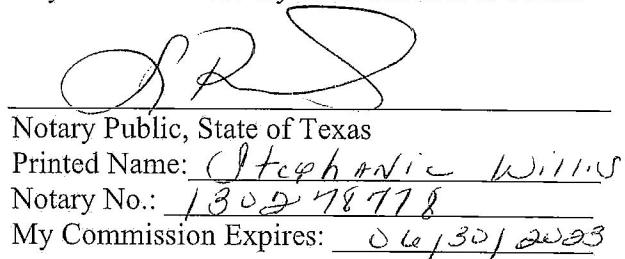 Notary Public, State of Texas
Printed Name: Stephanie Willis
Notary No.: 130278778
My Commission Expires: 06/30/2023